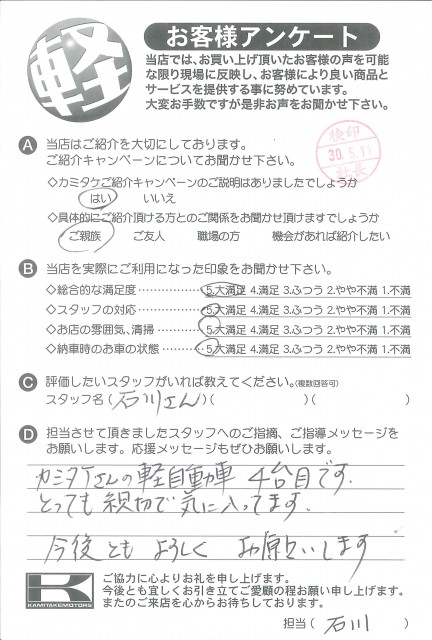 軽
お客様アンケート
当店では、お買い上げ頂いたお客様の声を可能
な限り現場に反映し、お客様により良い商品と
サービスを提供する事に努めています。
大変お手数ですが是非お声をお聞かせ下さい。
A 当店はご紹介を大切にしております。
ご紹介キャンペーンについてお聞かせ下さい。
検印
30.5.11
社長
◇カミタケご紹介キャンペーンのご説明はありましたでしょうか
はい いいえ
◇具体的にご紹介頂ける方とのご関係をお聞かせ頂けますでしょうか
ご親族 ご友人 職場の方 機会があれば紹介したい
B 当店を実際にご利用になった印象をお聞かせ下さい。
◇総合的な満足度……………5.大満足 4.満足 3.ふつう 2.やや不満 1.不満
◇スタッフの対応……………5.大満足 4.満足 3.ふつう 2.やや不満 1.不満
◇お店の雰囲気、清掃………5.大満足 4.満足 3.ふつう 2.やや不満 1.不満
◇納車時のお車の状態………5.大満足 4.満足 3.ふつう 2.やや不満 1.不満
C 評価したいスタッフがいれば教えてください。(複数回答可)
スタッフ名(石川さん)( )( )
D 担当させて頂きましたスタッフへのご指摘、ご指導メッセージを
お願いします。応援メッセージもぜひお願いします。
カミタケさんの軽自動車 4台目です.
とっても親切で気に入ってます.
今後とも よろしく お願いします
K
KAMITAKEMOTORS
ご協力に心よりお礼を申し上げます。
今後とも宜しくお引き立てご愛顧の程お願い申し上げます。
またのご来店を心からお待ちしております。
担当(石川)